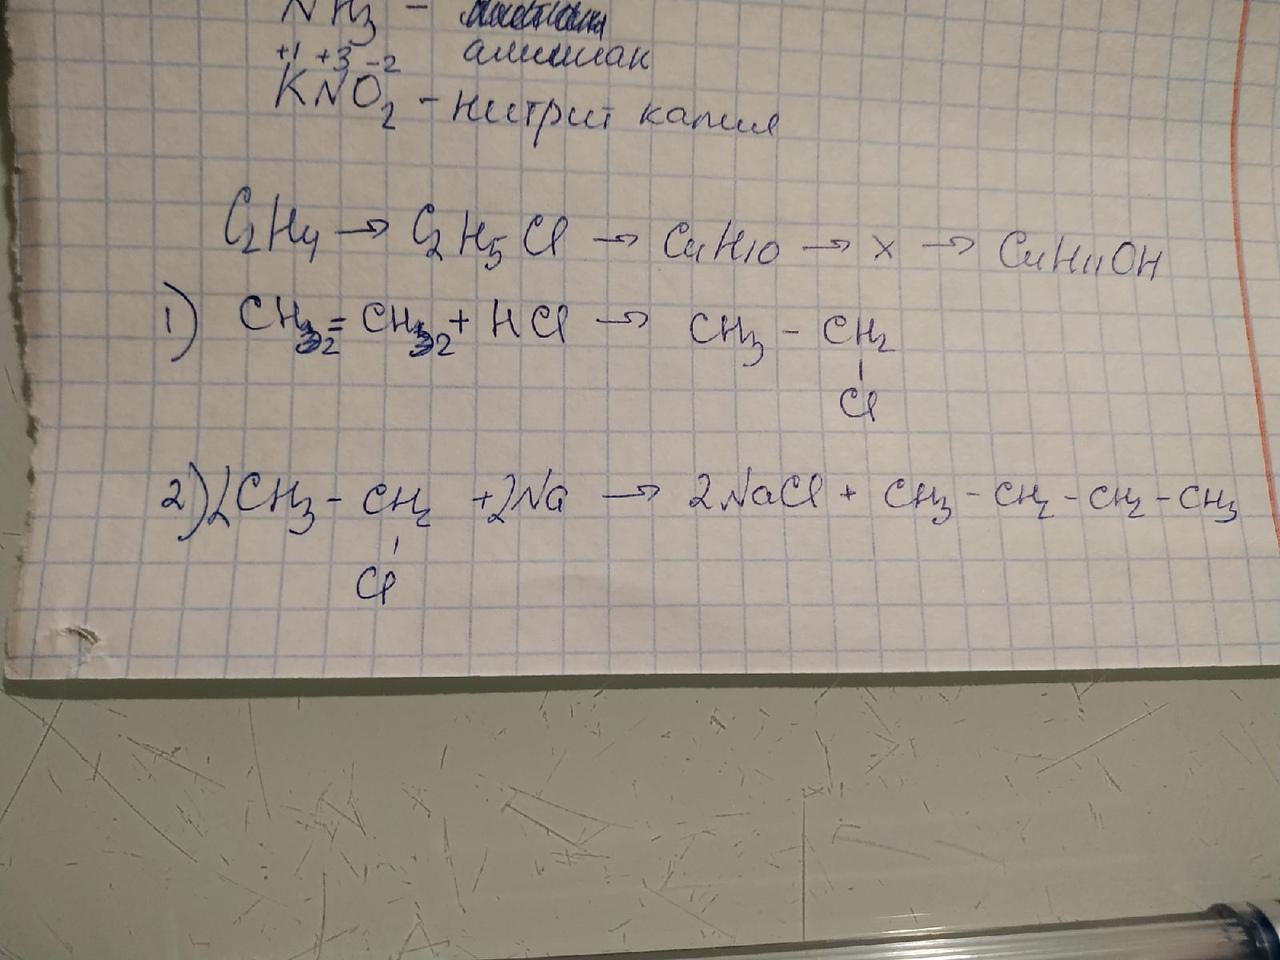 NH3 -
аммиак
+1 +3 -2
KNO2 - нитрит калия
C2H4 → C2H5Cl → C4H10 → x → C4H11OH
1) CH2 = CH2 + HCl → CH3 - CH2
Cl
2) 2CH3 - CH2 + 2Na → 2NaCl + CH3 - CH2 - CH2 - CH3
Cl